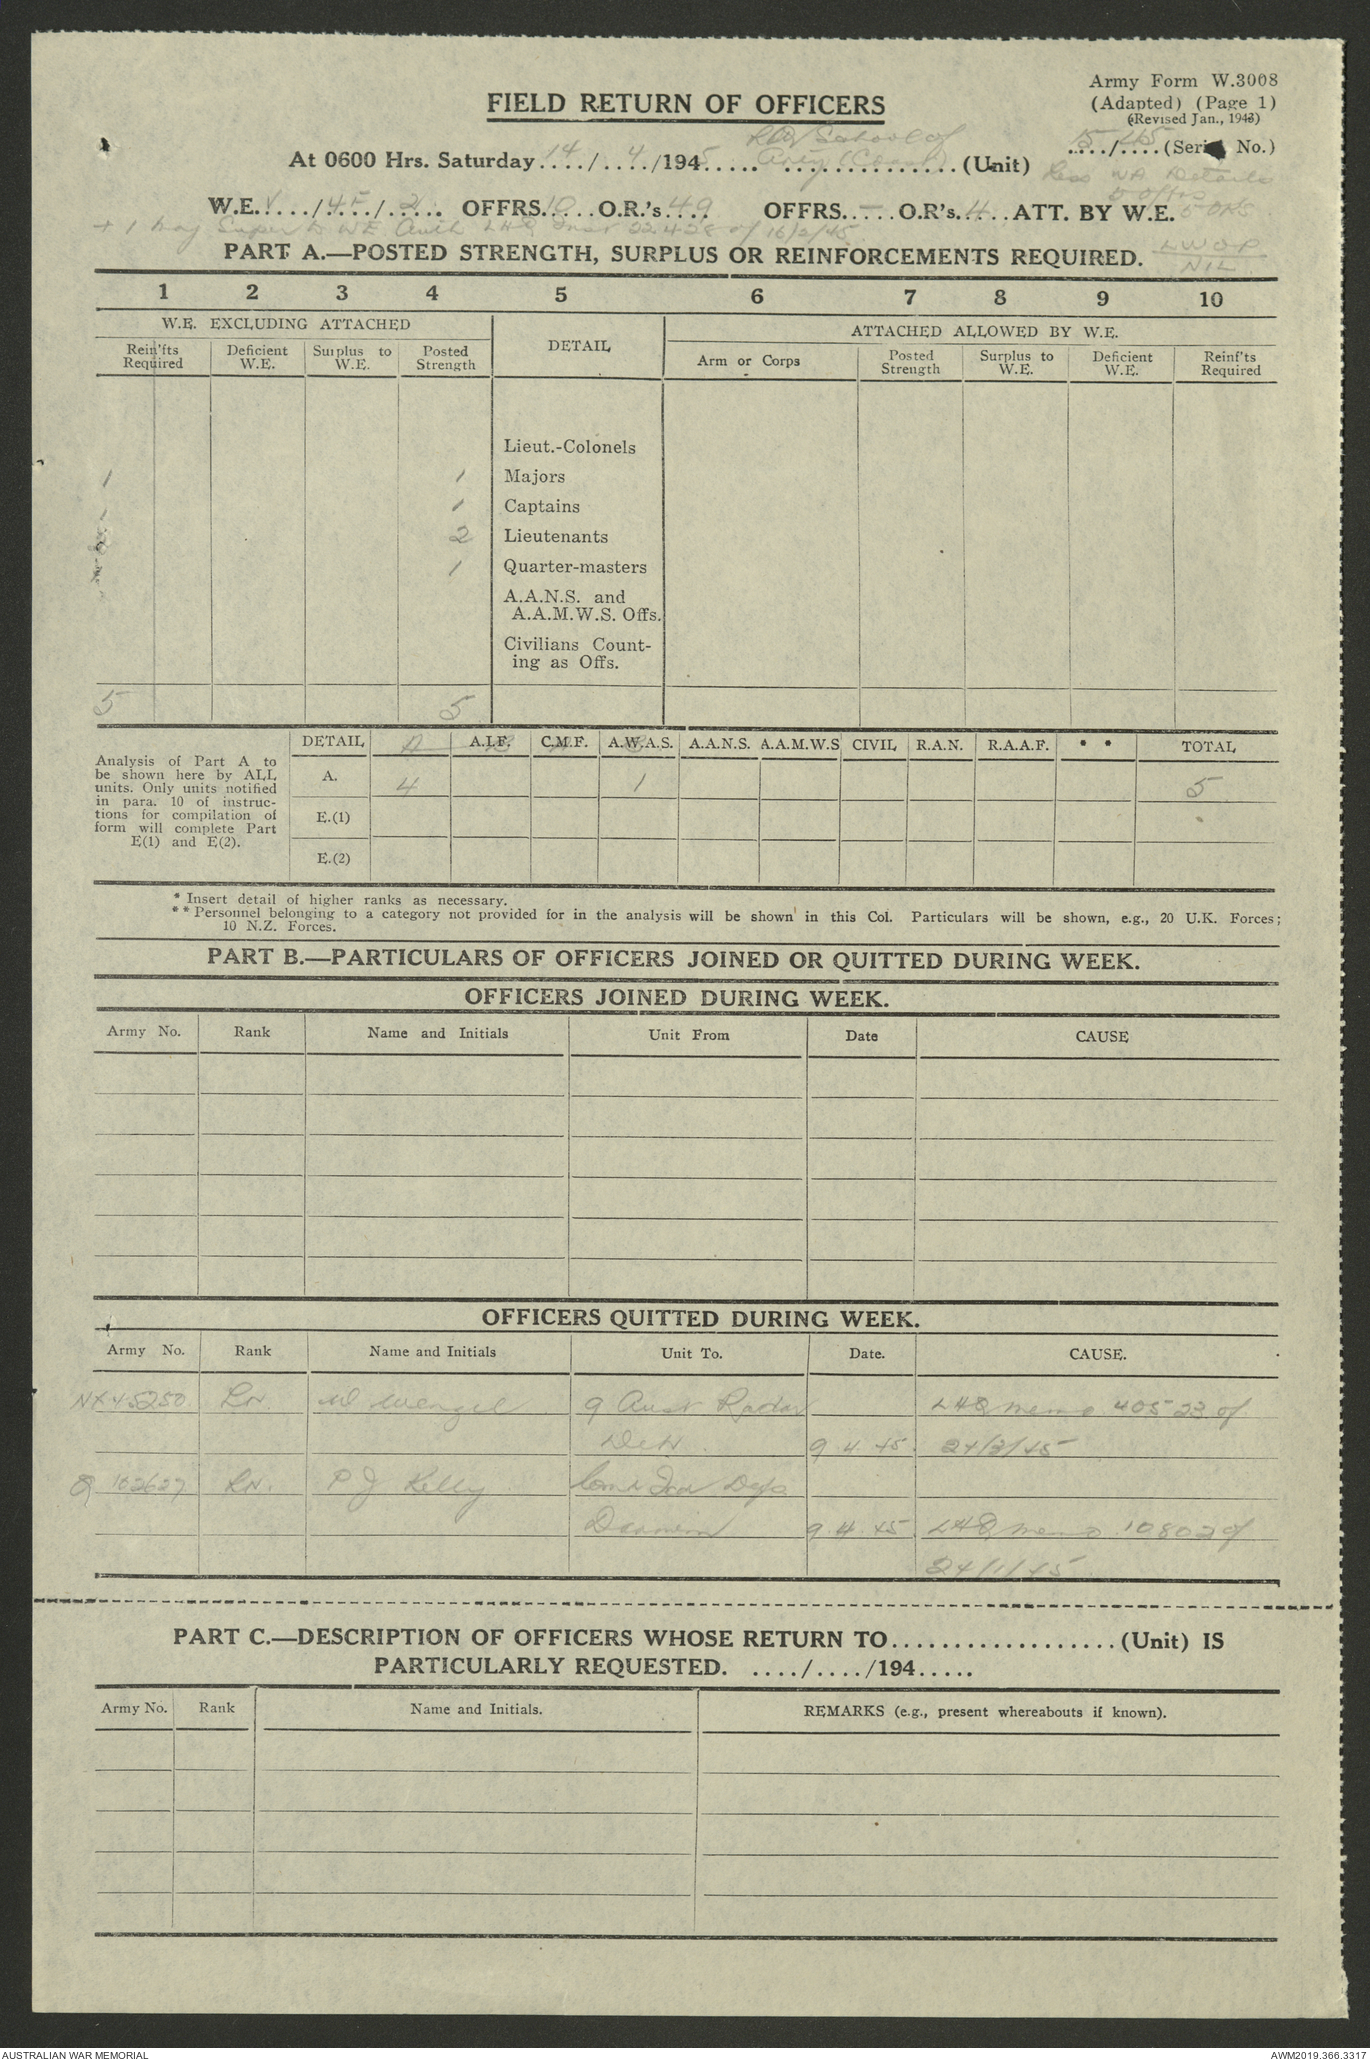 Army Form W.3008
FIELD RETURN OF OFFICERS
(Adapted) (Page 1)
(Revised Jan., 1943)
At 0600 Hrs. Saturday 14/4/1945 School of Arty (Unit) 15/45 (Serial No.)
Less WA Details
5 Offrs
W.E. V/45/2 OFFRS. 10 O.R.'s. 49 OFFRS. - O.R's. 4 ATT. BY W.E. 5 ORs
+ 1 Maj Super to WE Auth LHQ 22428 of 16/2/45
LWOP
NIL
PART A.—POSTED STRENGTH, SURPLUS OR REINFORCEMENTS REQUIRED.
1 2 3 4 5 6 7 8 9 10
W.E. EXCLUDING ATTACHED DETAIL ATTACHED ALLOWED BY W.E.
Rein'fts Required Deficient W.E. Surplus to W.E. Posted Strength Arm or Corps Posted Strength Surplus to W.E. Deficient W.E. Reinf'ts Required
Lieut.-Colonels
1 1 Majors
1 1 Captains
2 Lieutenants
1 Quarter-masters
A.A.N.S. and
A.A.M.W.S. Offs.
Civilians Count-
ing as Offs.
5 5
Analysis of Part A to
be shown here by ALL
units. Only units notified
in para. 10 of instruc-
tions for compilation of
form will complete Part
E(1) and E(2).
DETAIL A.I.F. C.M.F. A.W.A.S. A.A.N.S. A.A.M.W.S CIVIL R.A.N. R.A.A.F. * * TOTAL
A. 4 1 5
E.(1)
E.(2)
* Insert detail of higher ranks as necessary.
** Personnel belonging to a category not provided for in the analysis will be shown in this Col. Particulars will be shown, e.g., 20 U.K. Forces;
10 N.Z. Forces.
PART B.—PARTICULARS OF OFFICERS JOINED OR QUITTED DURING WEEK.
OFFICERS JOINED DURING WEEK.
Army No. Rank Name and Initials Unit From Date CAUSE
OFFICERS QUITTED DURING WEEK.
Army No. Rank Name and Initials Unit To. Date. CAUSE.
NX45250 Lt. W Wengel 9 Aust Radar LHQ memo 40523 of
Det 9.4.45 24/3/45
Q102627 Lt. P J Kelly
Darwin 9.4.45 LHQ memo 10802 of
24/1/45
PART C.—DESCRIPTION OF OFFICERS WHOSE RETURN TO.................. (Unit) IS
PARTICULARLY REQUESTED. ..../..../194.....
Army No. Rank Name and Initials. REMARKS (e.g., present whereabouts if known).
AUSTRALIAN WAR MEMORIAL
AWM2019.366.3317